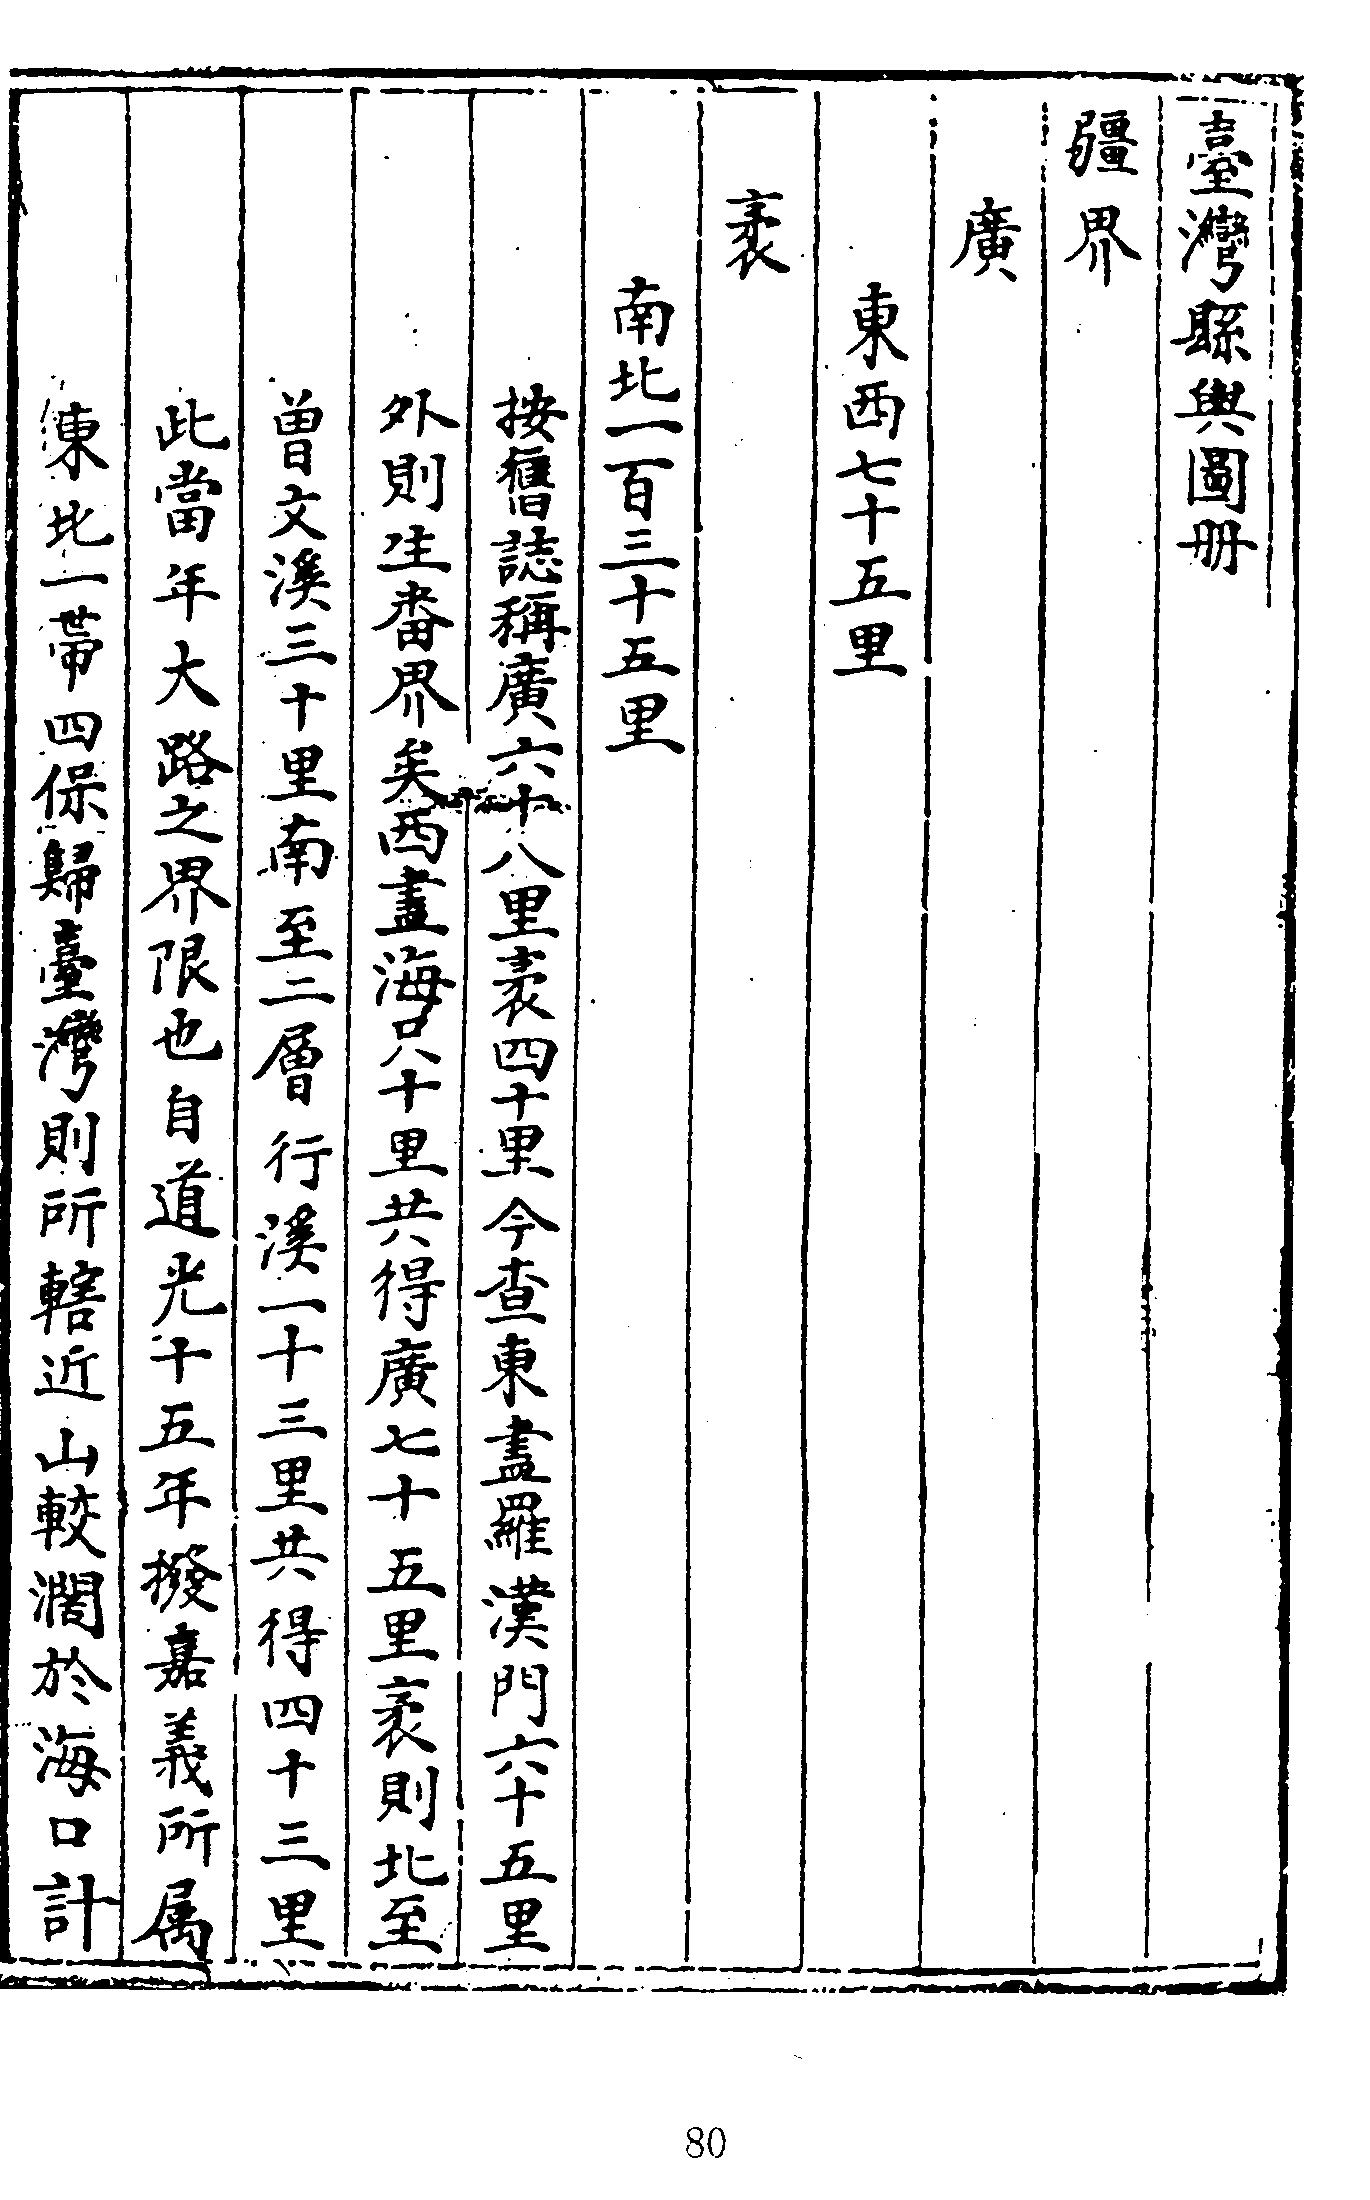 臺灣縣輿圖册
疆界
廣
東西七十五里
袤
南北一百三十五里
按舊誌稱廣六十八里袤四十里今查東盡羅漢門六十五里
外則生番界矣西盡海口八十里共得廣七十五里袤則北至
曾文溪三十里南至二層行溪一十三里共得四十三里
此當年大路之界限也自道光十五年撥嘉義所属
東北一帶四保歸臺灣則所轄近山較濶於海口計
80